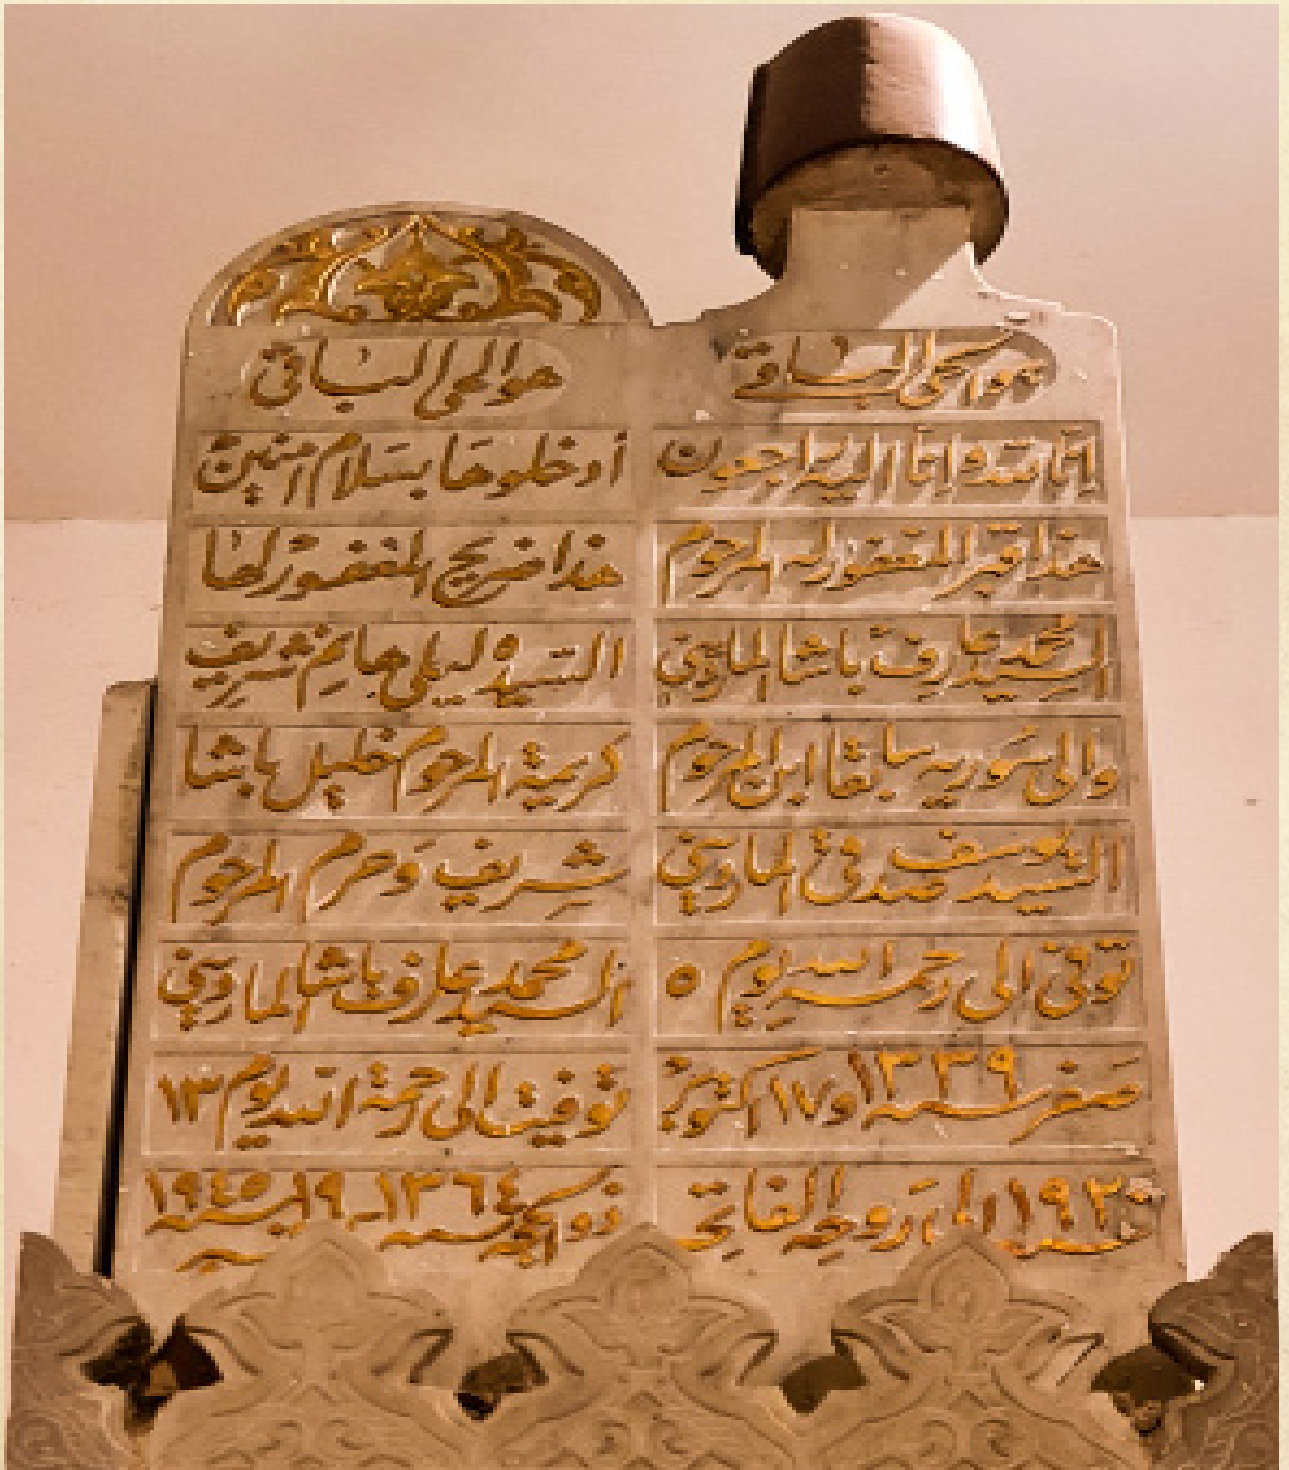 هو الحي الباقي
إنا لله وإنا إليه راجعون
هذا قبر المغفور له المرحوم
السيد محمد عارف باشا المارديني
والي سورية سابقا ابن المرحوم
السيد يوسف صدقي المارديني
توفي الى رحمة الله يوم ٥
صفر سنة ١٣٣٩ و ١٧ اكتوبر
سنة ١٩٢٠ الى روحه الفاتحة
هو الحي الباقي
أدخلوها بسلام امنين
هذا ضريح المغفور لها
السيدة ليلى هانم شريف
كريمة المرحوم خليل باشا
شريف وحرم المرحوم
السيد محمد عارف باشا المارديني
توفيت الى رحمة الله يوم ١٣
ذو الحجة سنة ١٣٦٤ - ١٩ سنة ١٩٤٥